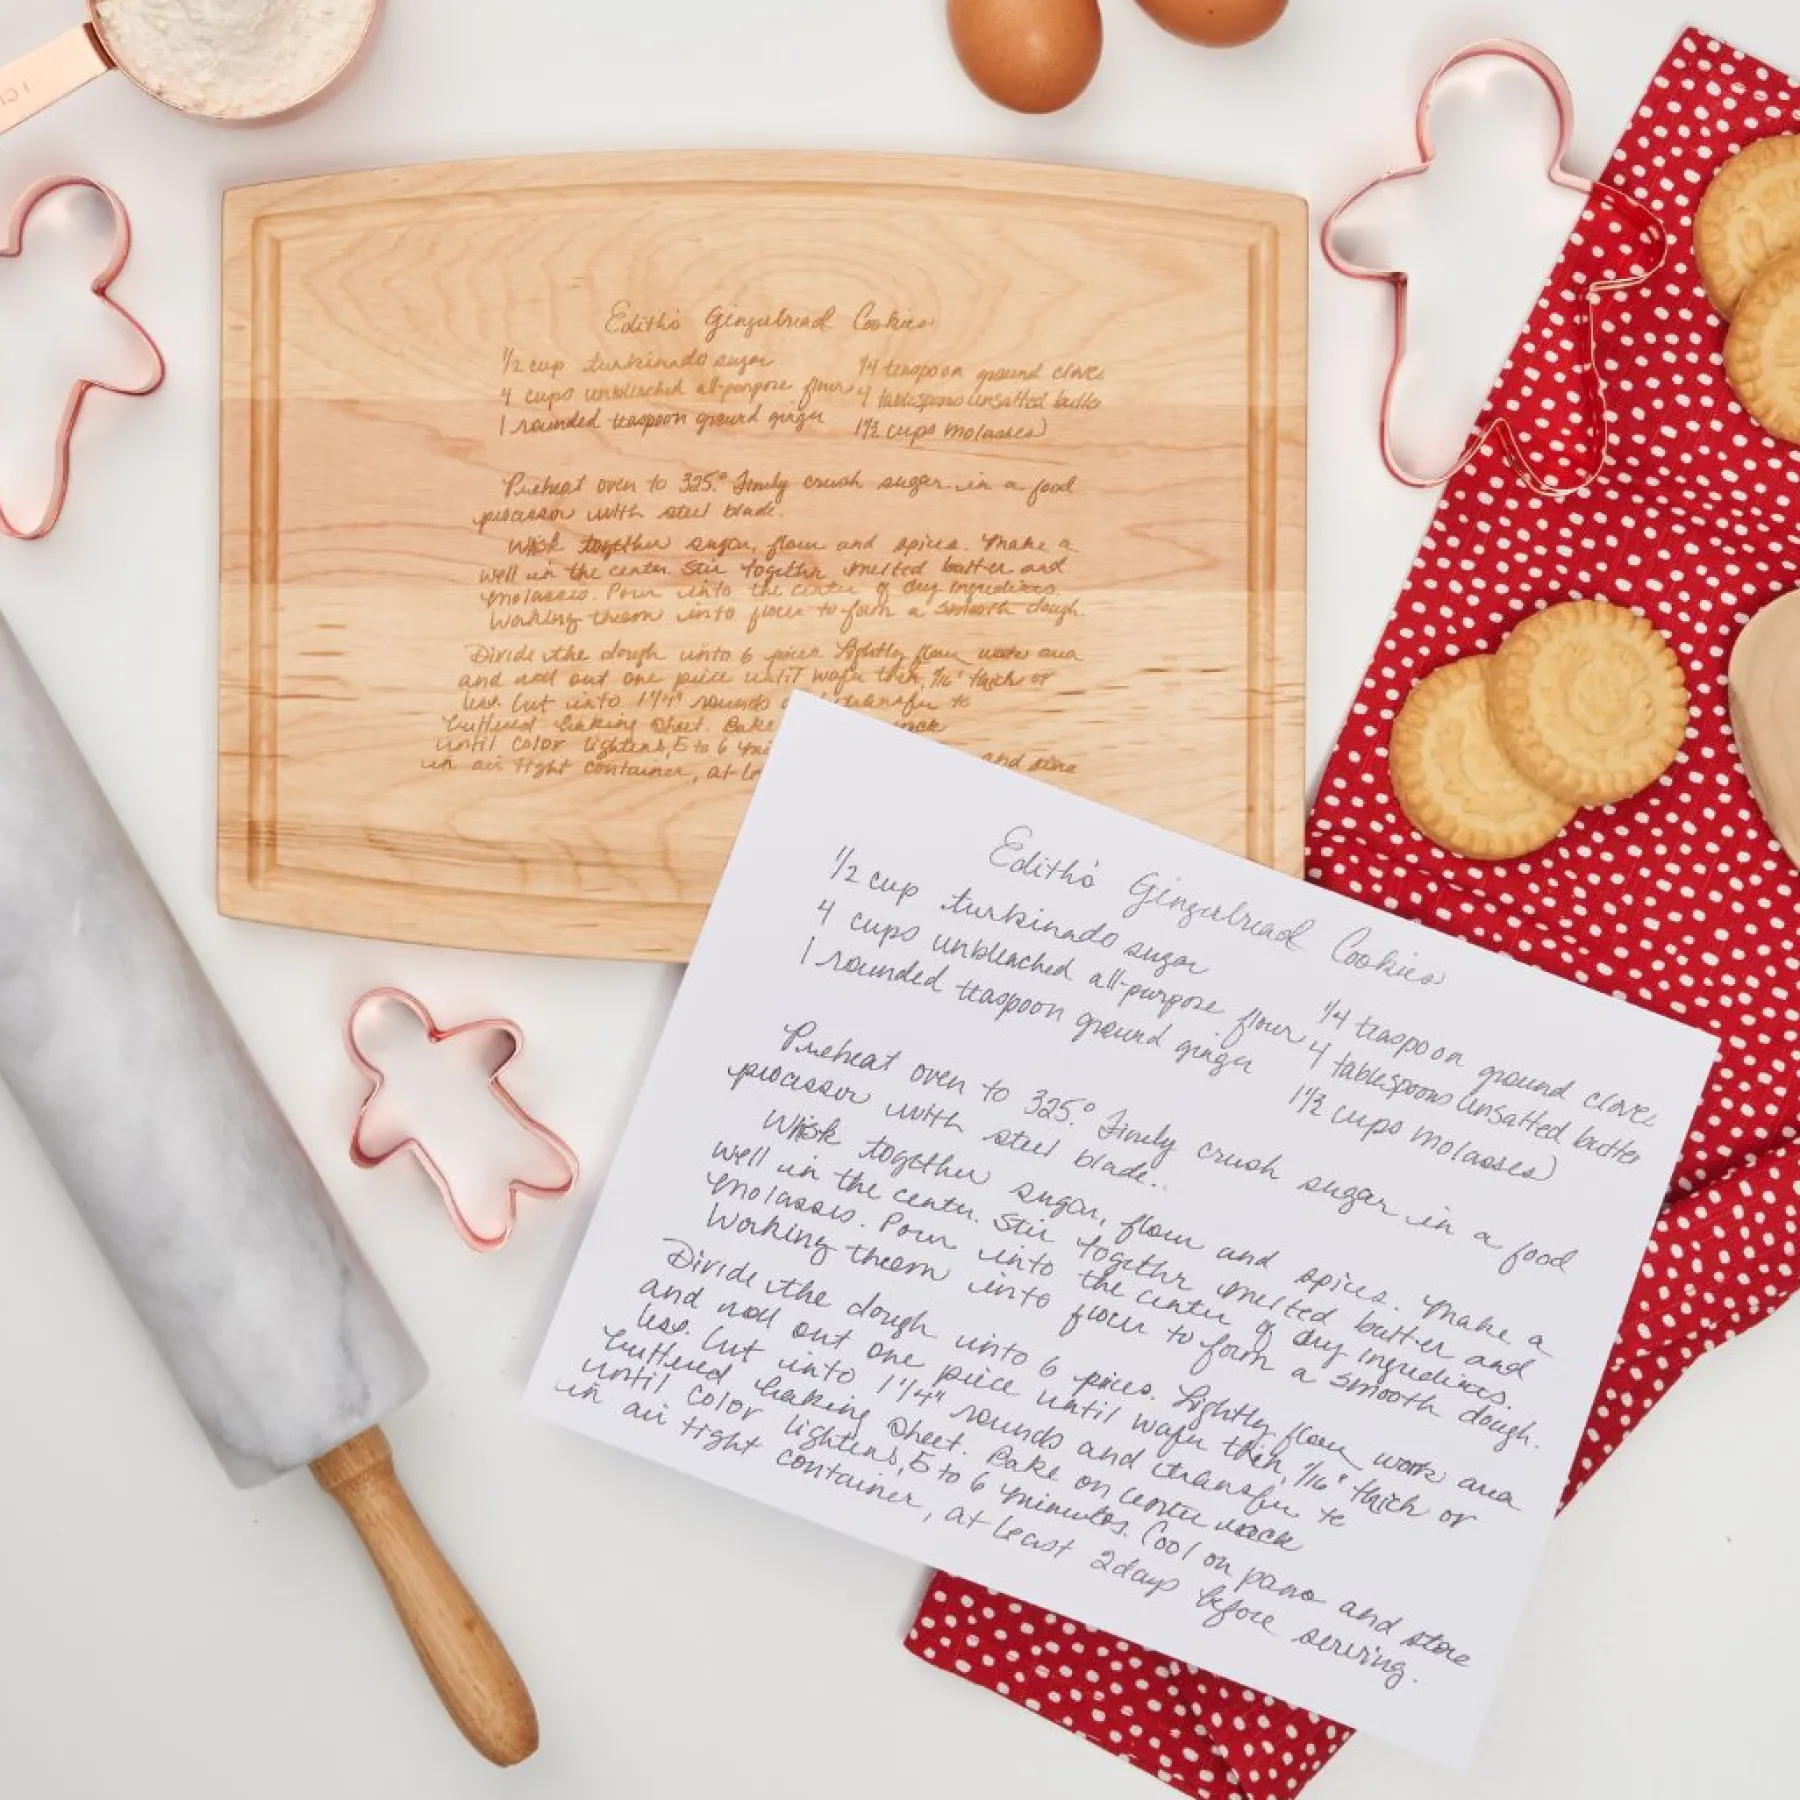 1 C
Edith's Gingerbread Cookies
1/2 cup turkinado sugar
4 cups unbleached all-purpose flour
1 rounded teaspoon ground ginger
1/4 teaspoon ground clove
4 tablespoons unsalted butter
1 1/2 cups molasses
Preheat oven to 325.° Finely crush sugar in a food
processor with steel blade.
Whisk together sugar, flour and spices. Make a
well in the center. Stir together melted butter and
molasses. Pour into the center of dry ingredients.
Working them into flour to form a smooth dough.
Divide the dough into 6 pieces. Lightly flour work area
and roll out one piece until wafer thin, 1/16" thick or
less. Cut into 1 1/4" rounds transfer to
buttered baking sheet. Bake rack
until color lightens, 5 to 6
in air tight container, at and store
Edith's Gingerbread Cookies
1/2 cup turkinado sugar
4 cups unbleached all-purpose flour
1 rounded teaspoon ground ginger
1/4 teaspoon ground clove
4 tablespoons unsalted butter
1 1/2 cups molasses
Preheat oven to 325.° Finely crush sugar in a food
processor with steel blade.
Whisk together sugar, flour and spices. Make a
well in the center. Stir together melted butter and
molasses. Pour into the center of dry ingredients.
Working them into flour to form a smooth dough.
Divide the dough into 6 pieces. Lightly flour work area
and roll out one piece until wafer thin, 1/16" thick or
less. Cut into 1 1/4" rounds and transfer to
buttered baking sheet. Bake on center rack
until color lightens, 5 to 6 minutes. Cool on pans and store
in air tight container, at least 2 days before serving.